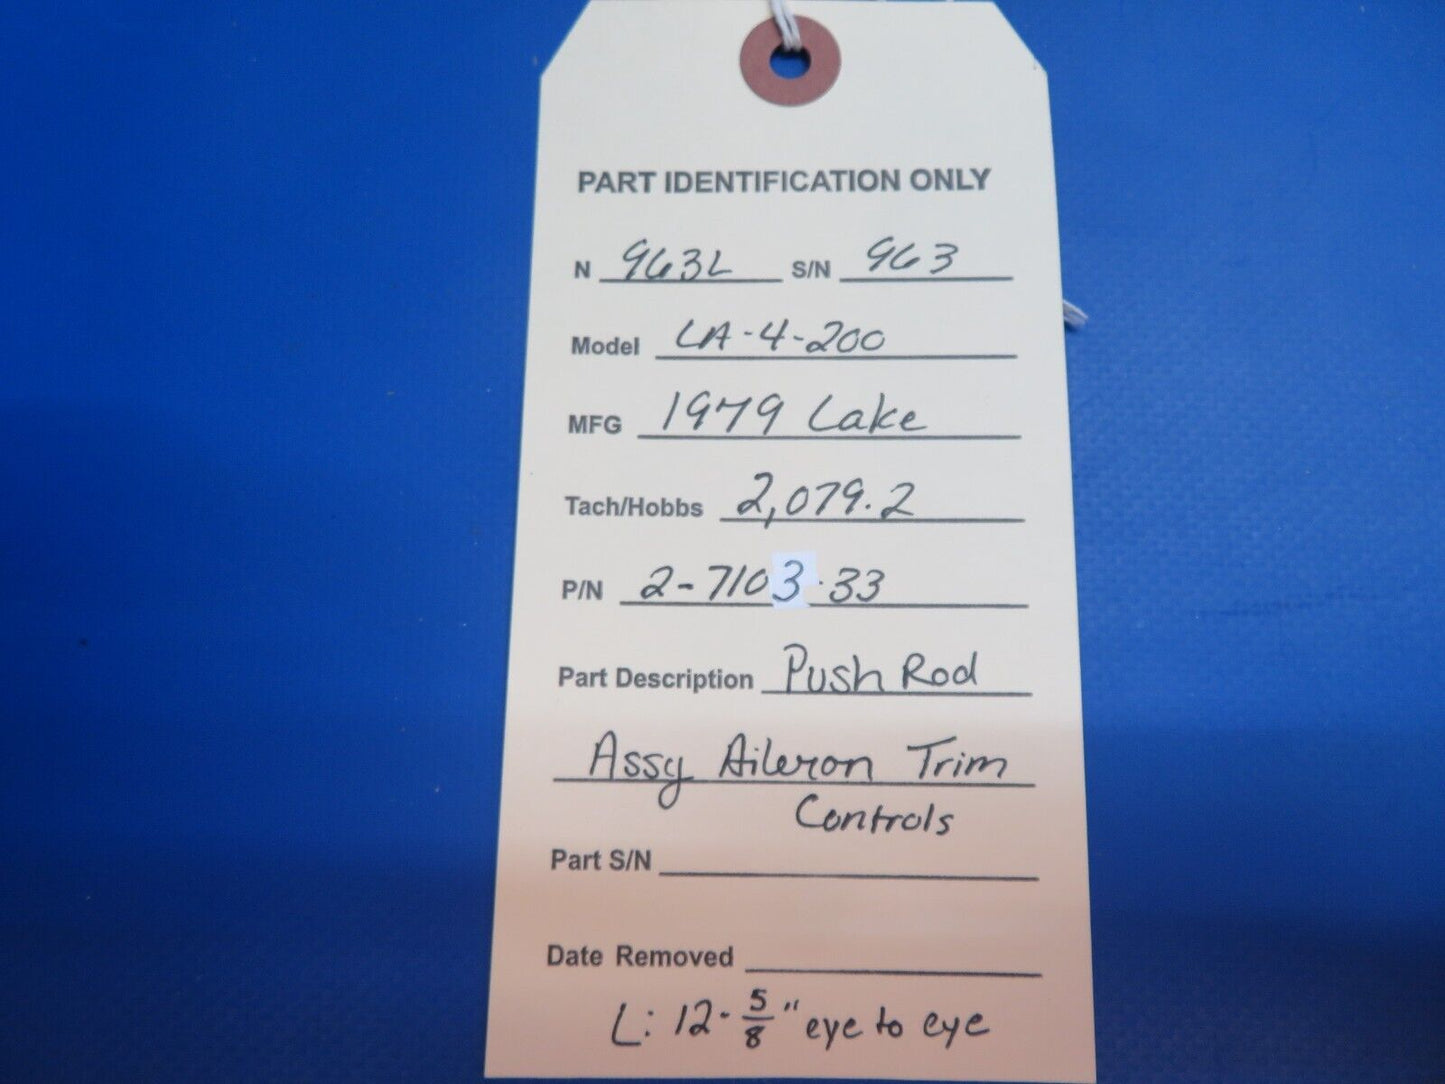 PART IDENTIFICATION ONLY
N 963L S/N 963
Model LA-4-200
MFG 1979 Lake
Tach/Hobbs 2,079.2
P/N 2-7103-33
Part Description Push Rod
Assy Aileron Trim
Controls
Part S/N
Date Removed
L: 12-5/8" eye to eye